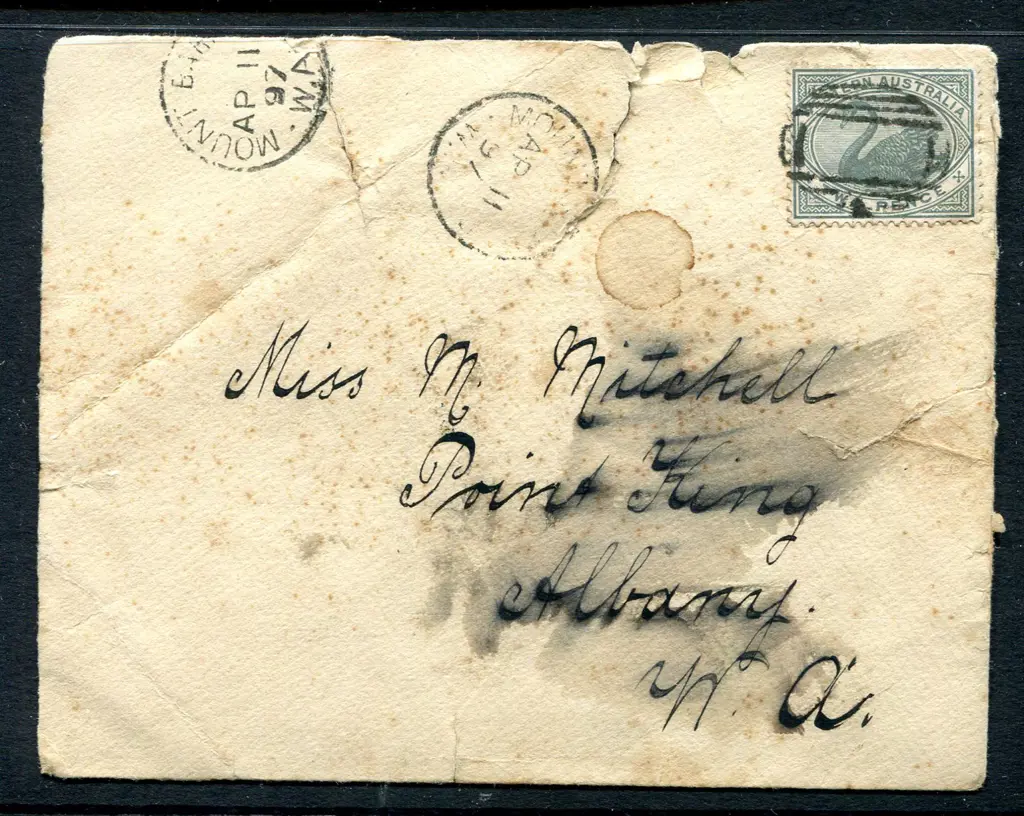 MOUNT BAR
AP 11
97
W.A
MOUNT
AP 11
97
W.
WESTERN AUSTRALIA
TWO PENCE
Miss M. Mitchell
Point King
Albany.
W. A.